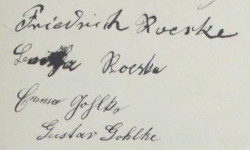 Friedrich Roeske
Roeske
Emma Gohlke
Gustav Gohlke